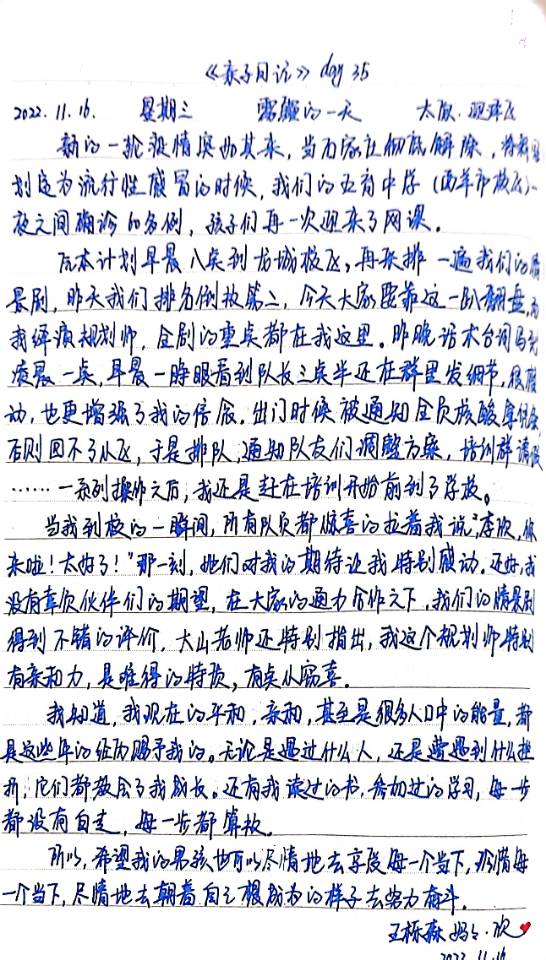 《亲子日记》day 35
2022.11.16. 星期三 震撼的一天 太原·
新的一轮疫情突如其来,当万家社彻底解除,将新冠
划定为流行性感冒的时候,我们的五育中学(西羊市校区)一
夜之间确诊10多例,孩子们再一次迎来了网课。
原本计划早晨八点到龙城校区,再次排一遍我们的情
景剧,昨天我们排名倒数第二,今天大家要靠这一趴翻盘,而
我绎演规划师,全剧的重点都在我这里。昨晚话术台词写到
凌晨一点,早晨一睁眼看到队长三点半还在群里发细节,很感
动,也更增强了我的信念。出门时候被通知全员核酸拿
否则回不了小区,于是排队,通知队友们调整方案,培训群请假
……一系列操作之后,我还是赶在培训开始前到了学校。
当我到校的一瞬间,所有队员都惊喜的拉着我说:"李欣,你
来啦!太好了!"那一刻,她们对我的期待让我特别感动。还好,我
没有辜负伙伴们的期望,在大家的通力合作之下,我们的情景剧
得到不错的评价,大山老师还特别指出,我这个规划师特别
有亲和力,是难得的特质,有点小窃喜。
我知道,我现在的平和,亲和,甚至是很多人口中的能量,都
是这些年的经历赐予我的。无论是遇过什么人,还是遭遇到什么挫
折,它们都教会了我成长。还有我读过的书,参加过的学习,每一步
都没有白走,每一步都算数。
所以,希望我的男孩也可以尽情地去享受每一个当下,珍惜每
一个当下,尽情地去朝着自己想成为的样子去努力奋斗。
王栎森妈妈·欣
2022.11.16